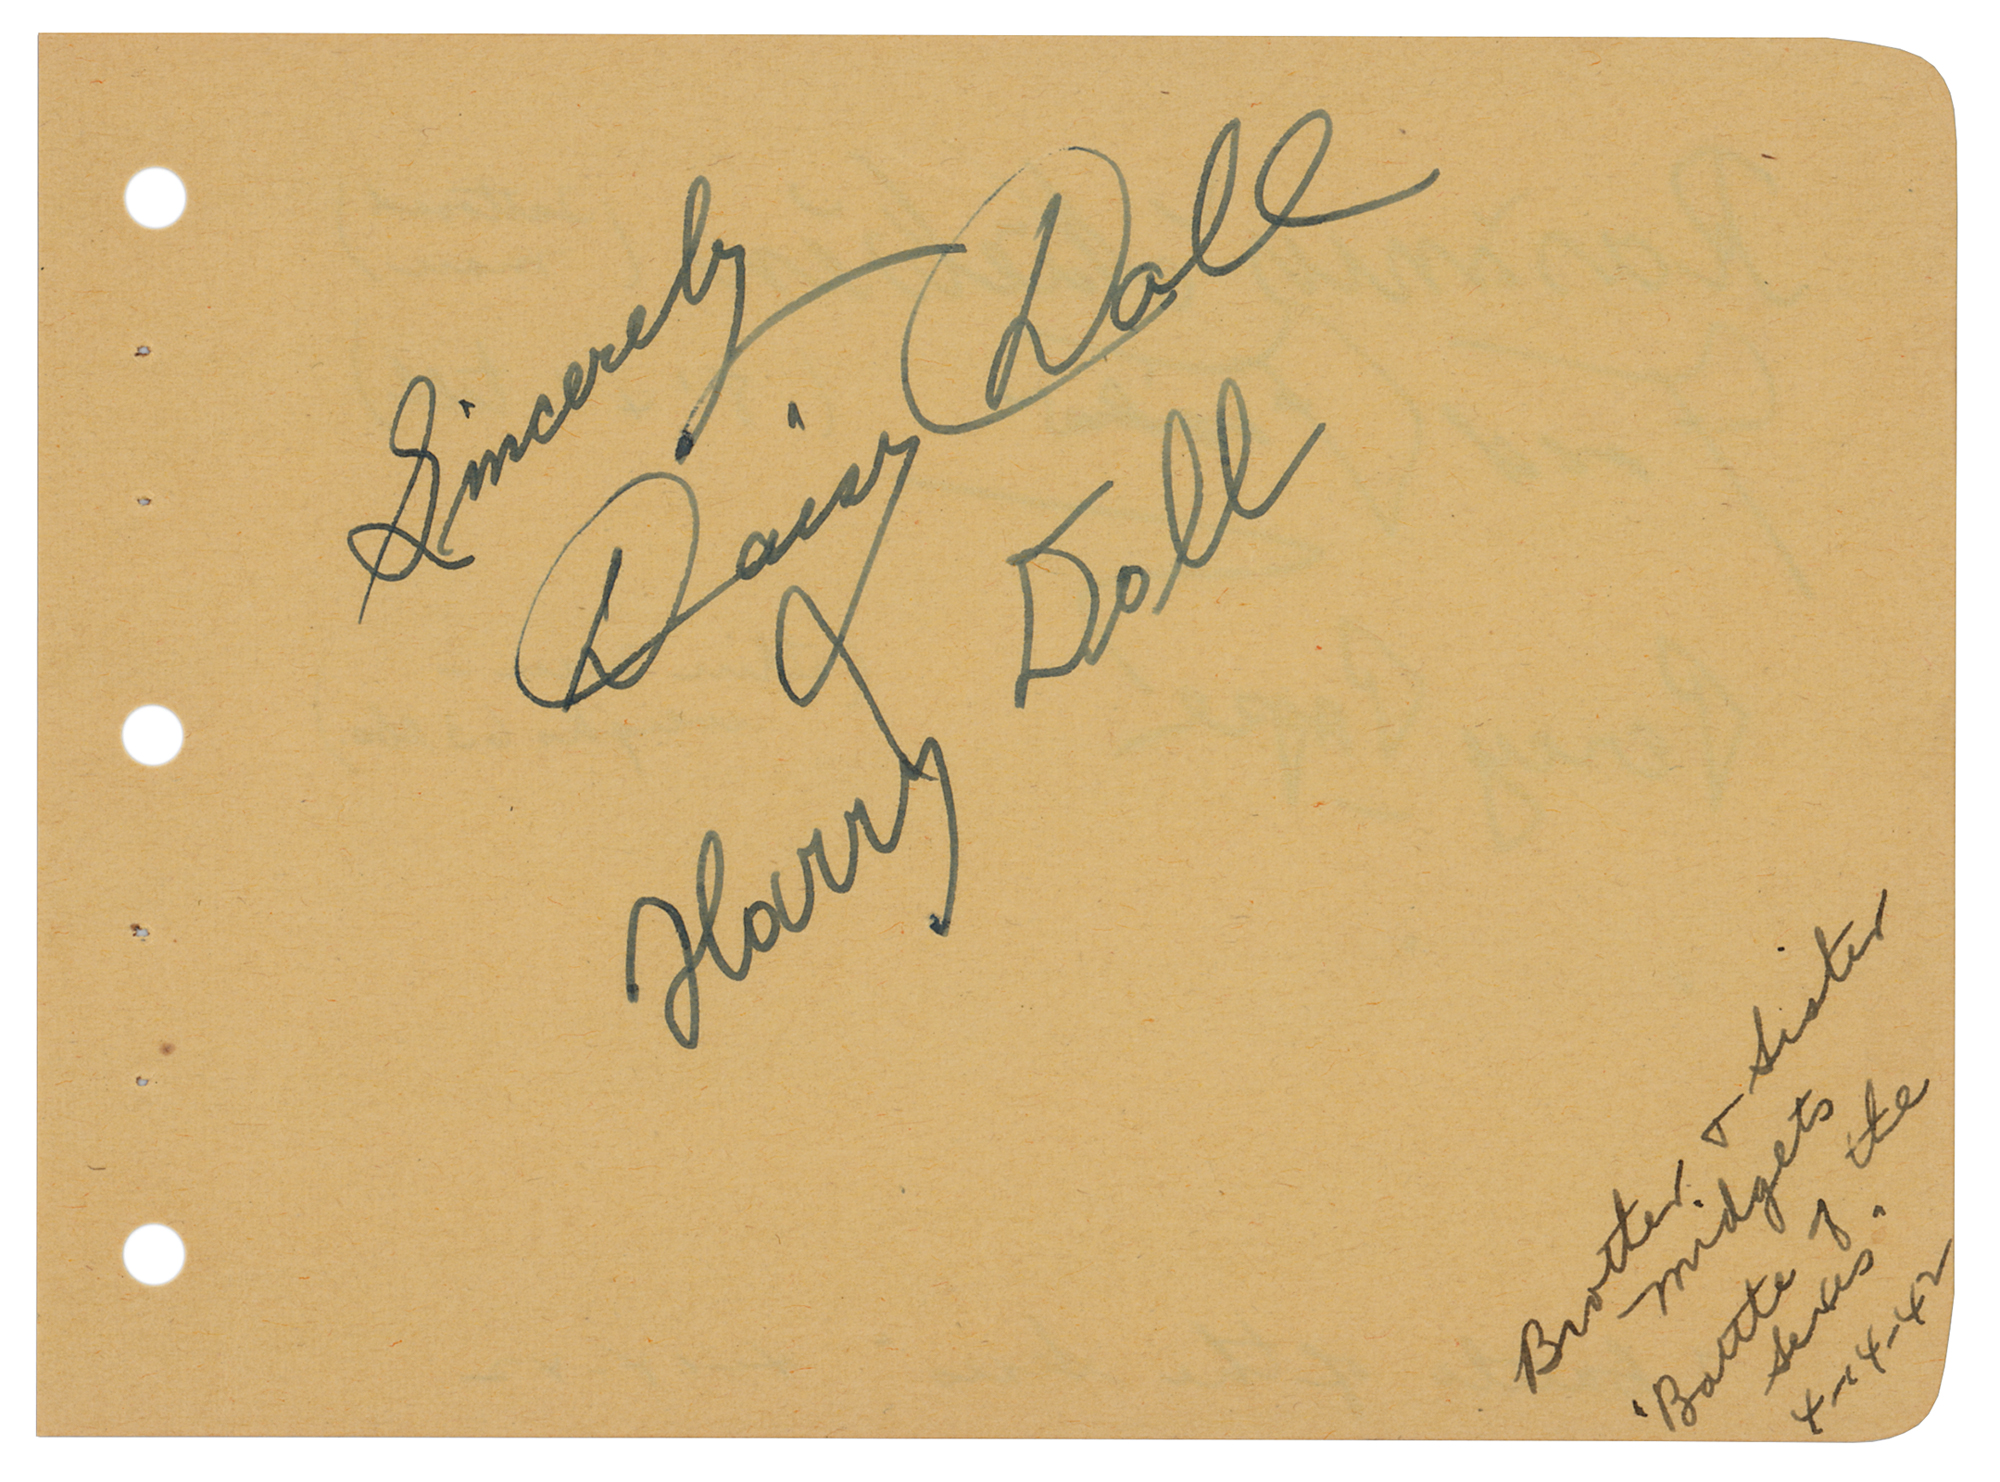 Sincerely
Daisy Doll
Harry Doll
Brother & Sister
midgets
"Battle of the
sexes".
4-14-42